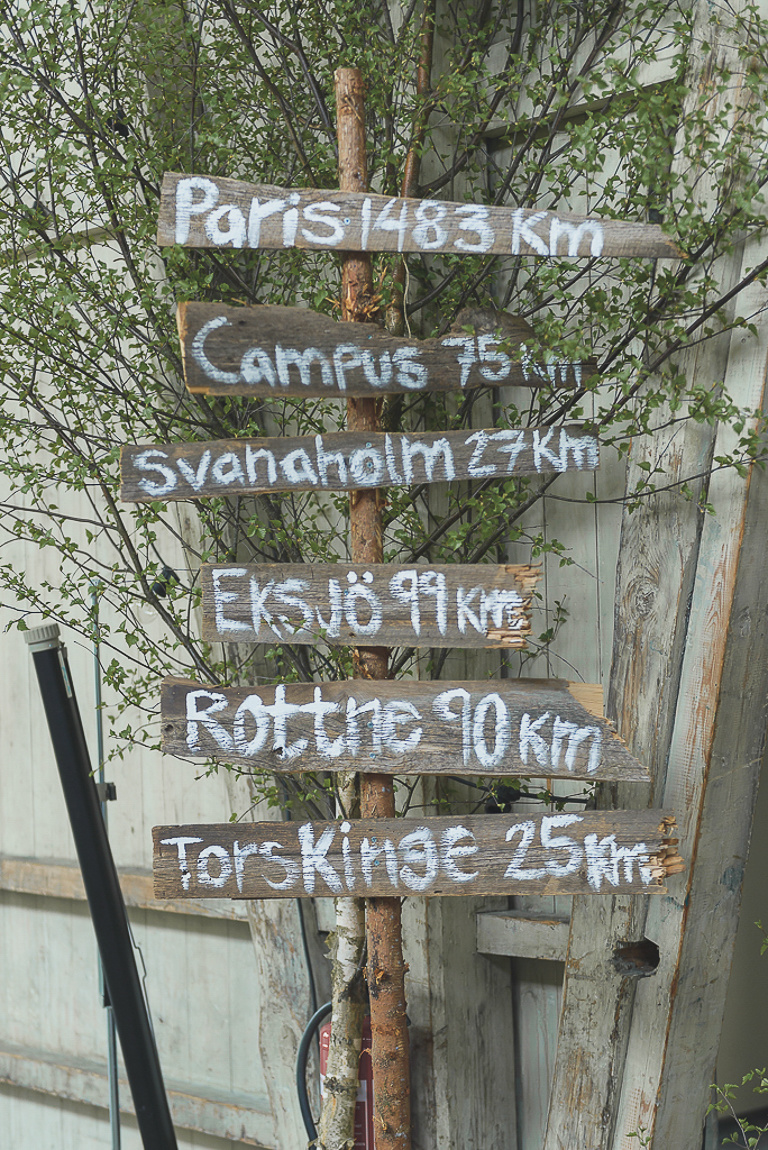 Paris 1483 Km
Campus 75 km
Svanaholm 27 Km
EKSJÖ 99 Km
Rottne 90 Km
Torskinge 25 Km